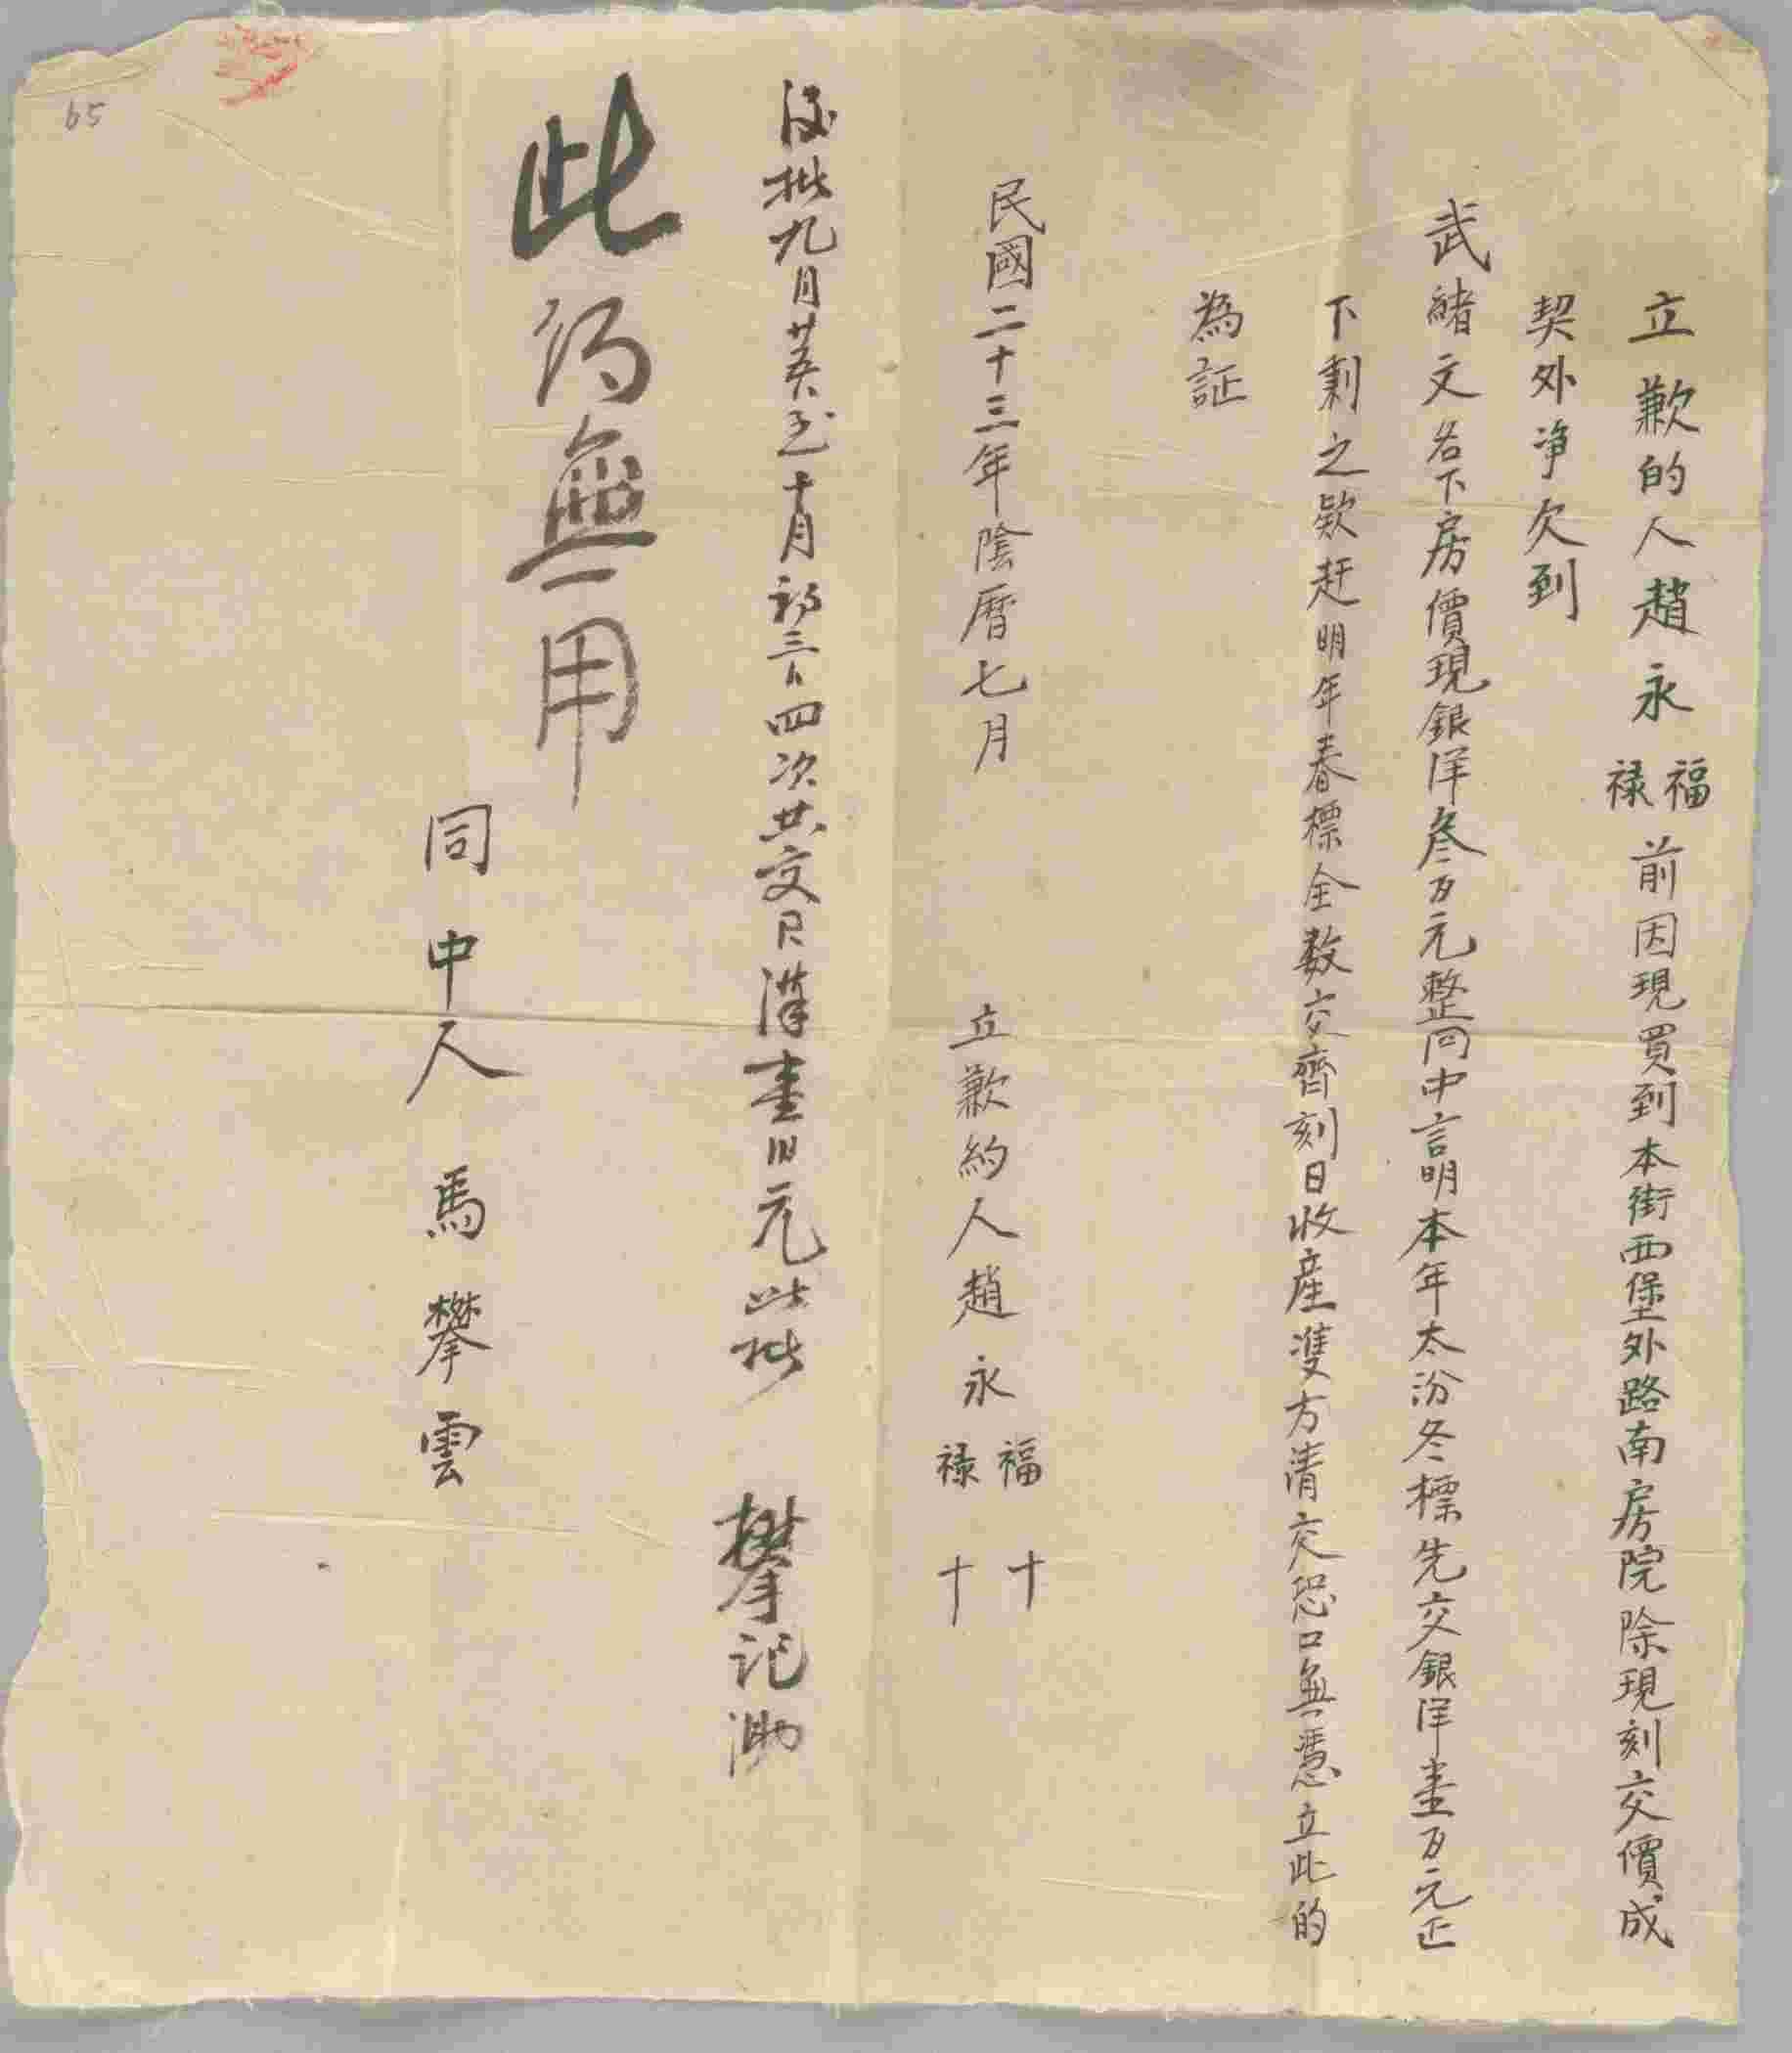 立歉的人趙永福禄前因現買到本街西堡外路南房院除現刻交價成
契外净欠到
武緒文名下房價現銀洋叁百元整同中言明本年太汾冬標先交銀洋壹百元正
下剩之欵赶明年春標全数交齊刻日收産雙方清交恐口無憑立此的
為証
民國二十三年陰曆七月
立歉約人趙永福禄 十 十
後批九月廿至十月初三日四次共交洋壹元此批
攀記
此約無用
同中人 馬攀雲
65